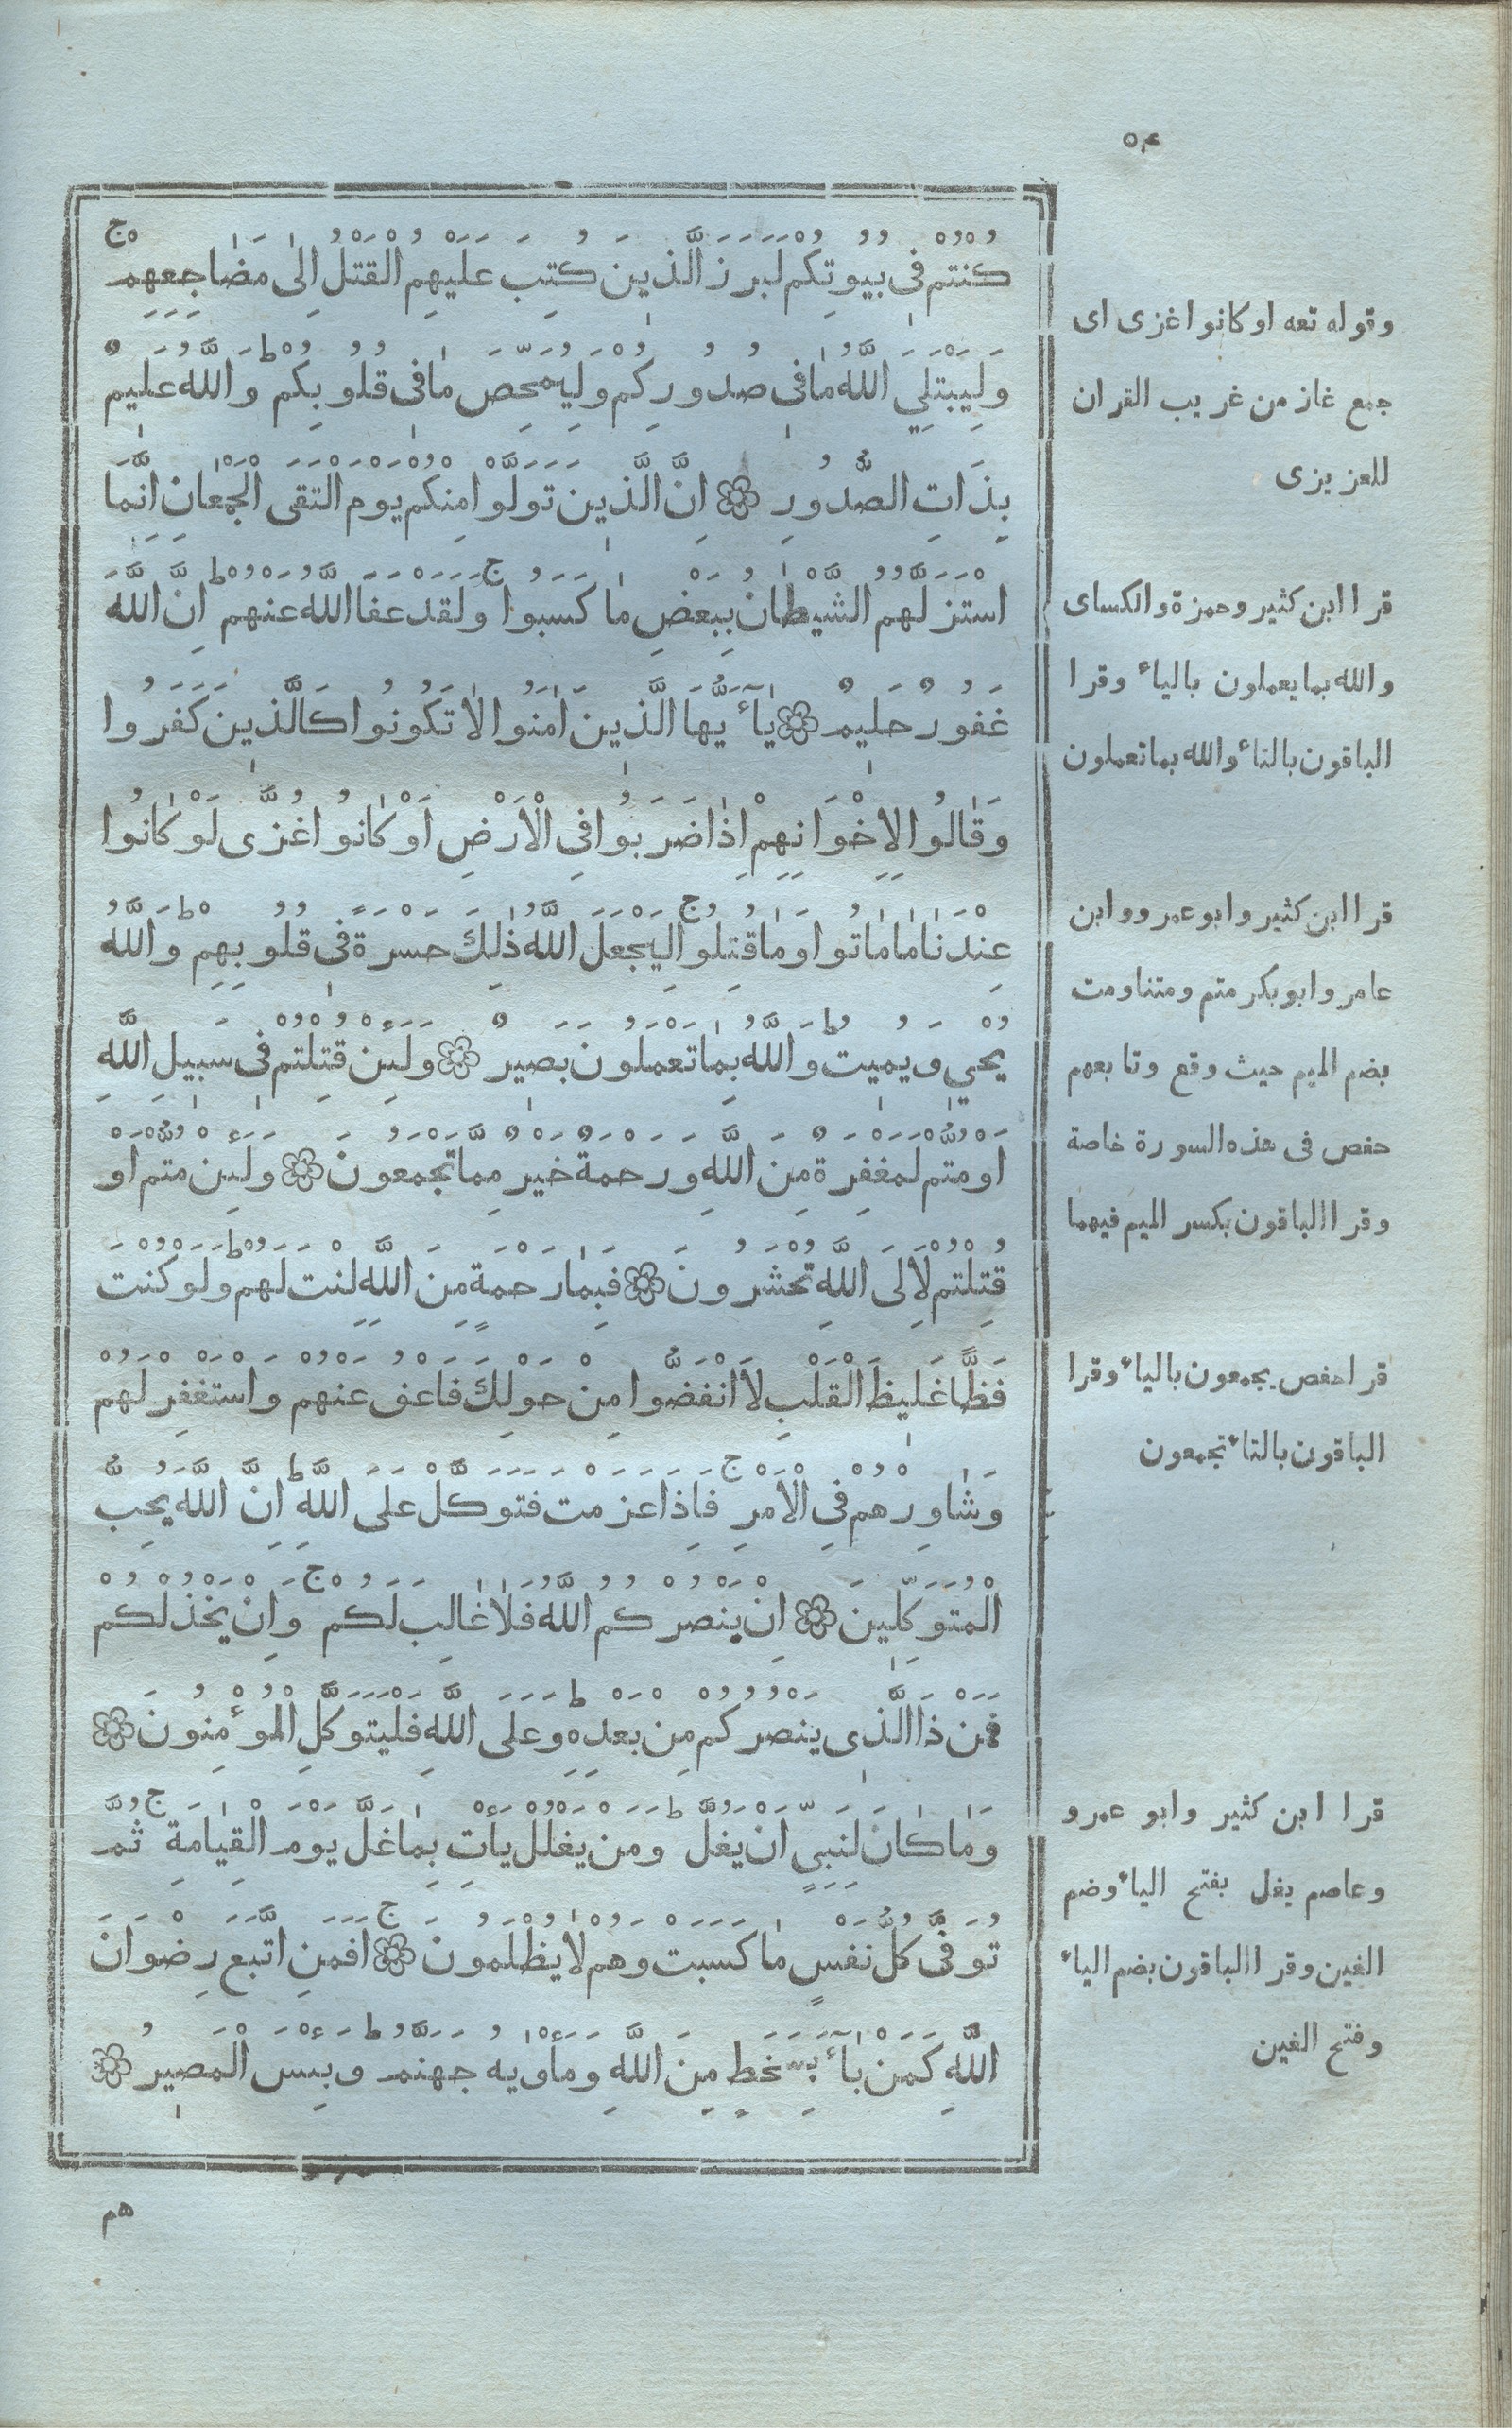 ٥٤
كُنْتُمْ فِى بُيُوتِكُمْ لَبَرَزَ الَّذِينَ كُتِبَ عَلَيْهِمُ الْقَتْلُ اِلٰى مَضَاجِعِهِمْ ج
وَلِيَبْتَلِيَ اللَّهُ مَا فِى صُدُورِكُمْ وَلِيُمَحِّصَ مَا فِى قُلُوبِكُمْ ط وَاللَّهُ عَلِيمٌ
بِذَاتِ الصُّدُورِ ۞ اِنَّ الَّذِينَ تَوَلَّوْا مِنْكُمْ يَوْمَ الْتَقَى الْجَمْعَانِ اِنَّمَا
اسْتَزَلَّهُمُ الشَّيْطَانُ بِبَعْضِ مَا كَسَبُوا ج وَلَقَدْ عَفَا اللَّهُ عَنْهُمْ ط اِنَّ اللَّهَ
غَفُورٌ حَلِيمٌ ۞ يَآءَيُّهَا الَّذِينَ اٰمَنُوا لَا تَكُونُوا كَالَّذِينَ كَفَرُوا
وَقَالُوا لِاِخْوَانِهِمْ اِذَا ضَرَبُوا فِى الْاَرْضِ اَوْ كَانُوا غُزًّى لَوْ كَانُوا
عِنْدَنَا مَا مَاتُوا وَمَا قُتِلُوا ج لِيَجْعَلَ اللَّهُ ذٰلِكَ حَسْرَةً فِى قُلُوبِهِمْ ط وَاللَّهُ
يُحْيِي وَيُمِيتُ ط وَاللَّهُ بِمَا تَعْمَلُونَ بَصِيرٌ ۞ وَلَئِنْ قُتِلْتُمْ فِى سَبِيلِ اللَّهِ
اَوْ مُتُّمْ لَمَغْفِرَةٌ مِنَ اللَّهِ وَرَحْمَةٌ خَيْرٌ مِمَّا تَجْمَعُونَ ۞ وَلَئِنْ مُتُّمْ اَوْ
قُتِلْتُمْ لَاِلَى اللَّهِ تُحْشَرُونَ ۞ فَبِمَا رَحْمَةٍ مِنَ اللَّهِ لِنْتَ لَهُمْ ط وَلَوْ كُنْتَ
فَظًّا غَلِيظَ الْقَلْبِ لَاَنْفَضُّوا مِنْ حَوْلِكَ فَاعْفُ عَنْهُمْ وَاسْتَغْفِرْ لَهُمْ
وَشَاوِرْهُمْ فِى الْاَمْرِ ج فَاِذَا عَزَمْتَ فَتَوَكَّلْ عَلَى اللَّهِ ط اِنَّ اللَّهَ يُحِبُّ
الْمُتَوَكِّلِينَ ۞ اِنْ يَنْصُرْكُمُ اللَّهُ فَلَا غَالِبَ لَكُمْ ج وَاِنْ يَخْذُلْكُمْ
فَمَنْ ذَا الَّذِى يَنْصُرُكُمْ مِنْ بَعْدِهِ ط وَعَلَى اللَّهِ فَلْيَتَوَكَّلِ الْمُؤْمِنُونَ ۞
وَمَا كَانَ لِنَبِىٍّ اَنْ يَغُلَّ ط وَمَنْ يَغْلُلْ يَاْتِ بِمَا غَلَّ يَوْمَ الْقِيَامَةِ ج ثُمَّ
تُوَفَّى كُلُّ نَفْسٍ مَا كَسَبَتْ وَهُمْ لَا يُظْلَمُونَ ۞ ج اَفَمَنِ اتَّبَعَ رِضْوَانَ
اللَّهِ كَمَنْ بَآءَ بِسَخَطٍ مِنَ اللَّهِ وَمَاْوٰيهُ جَهَنَّمُ ط وَبِئْسَ الْمَصِيرُ ۞
هم
وقوله تعه او كانوا غزى اى
جمع غاز من غريب القران
للعزيزى
قرا ابن كثير وحمزة والكساى
والله بما يعملون بالياء وقرا
الباقون بالتاء والله بما تعملون
قرا ابن كثير وابو عمرو وابن
عامر وابو بكر متم ومتنا ومت
بضم الميم حيث وقع وتابعهم
حفص فى هذه السورة خاصة
وقرا الباقون بكسر الميم فيهما
قرا حفص يجمعون بالياء وقرا
الباقون بالتاء تجمعون
قرا ابن كثير وابو عمرو
وعاصم يغل بفتح الياء وضم
الغين وقرا الباقون بضم الياء
وفتح الغين